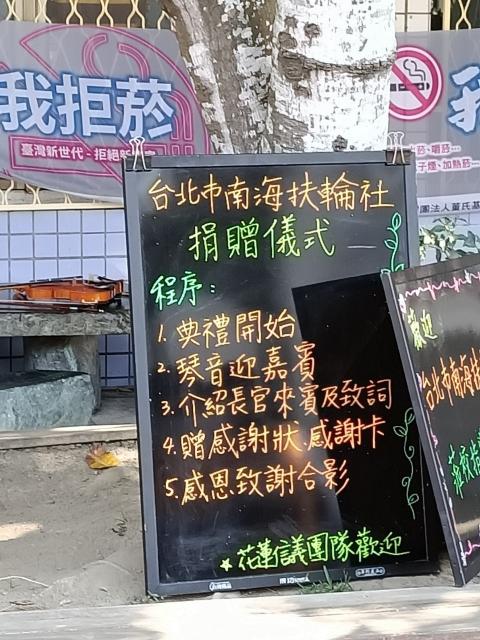 我拒菸
臺灣新世代
台北市南海扶輪社
捐贈儀式
程序：
1. 典禮開始
2. 琴音迎嘉賓
3. 介紹長官來賓及致詞
4. 贈感謝狀.感謝卡
5. 感恩致謝合影
★花蓮議團隊歡迎
歡迎
台北市南海扶
蒞校捐